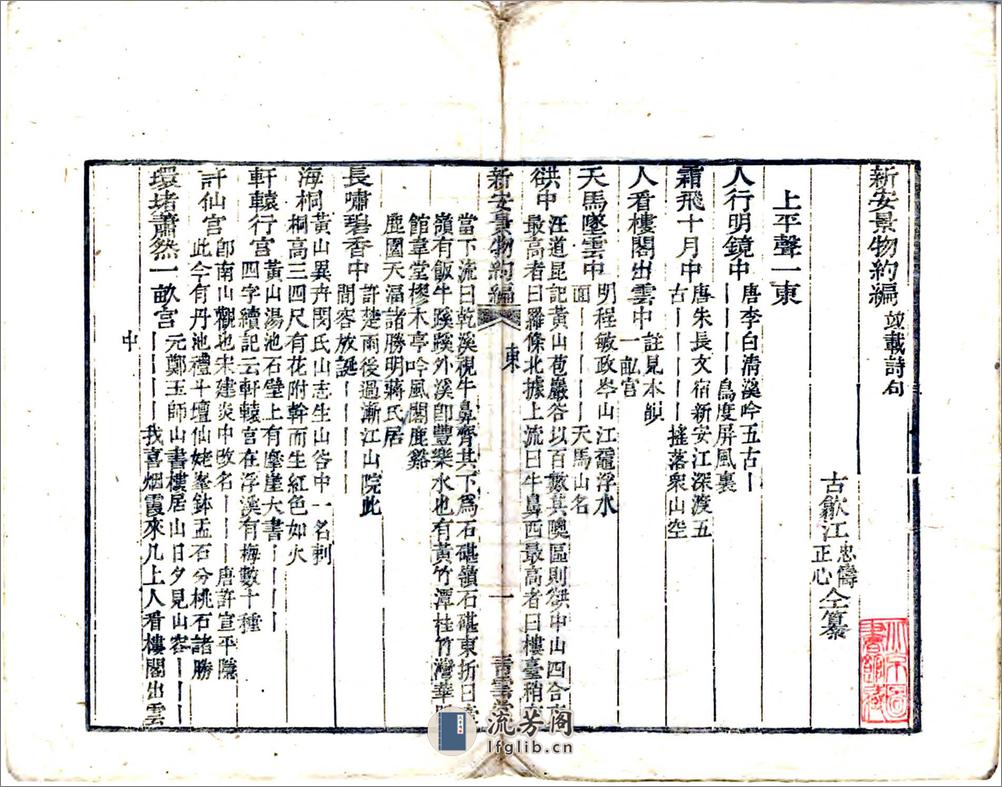 新安景物約編 竝載詩句
古歙江 忠儔 正心 仝纂
上平聲一東
人行明鏡中 唐李白清溪吟五古丨
丨丨丨丨鳥度屏風裏
霜飛十月中 唐朱長文宿新安江深渡五
古丨丨丨丨丨搖落衆山空
人看樓閣出雲中 註見本韻
一畝宮
天馬墜雲中 明程敏政岑山江鼉浮水
面丨丨丨丨丨天馬山名
谼中 汪道昆記黃山苞巖谷以百數其隩區則谼中山四合
最高者曰羅條北據上流曰牛鼻西最高者曰樓臺稍
新安景物約編 東 一 青雲堂
當下流曰乾溪視牛鼻齊其下爲石碪嶺石碪東折曰
嶺有飯牛蹊蹊外溪卽豐樂水也有黃竹潭桂竹灣華
館葦堂樛木亭吟風閣鹿谿
鹿園天湢諸勝明蔣氏居
長嘯碧香中 許楚雨後過漸江山院此
間容放誕丨丨丨丨丨
海桐 黃山異卉閔氏山志生山谷中一名刺
桐高三四尺有花附幹而生紅色如火
軒轅行宮 黃山湯池石壁上有磨崖大書丨丨丨丨
四字續記云軒轅宮在浮溪有梅數十種
許仙宮 卽南山觀也宋建炎中改名丨丨丨唐許宣平隱
此今有丹池禮斗壇仙姥峯鉢盂石分桃石諸勝
環堵蕭然一畝宮 元鄭玉師山書樓居山日夕見山容丨丨
丨丨丨丨丨我喜烟霞來几上人看樓閣出雲
中
流芳阁
lfglib.cn